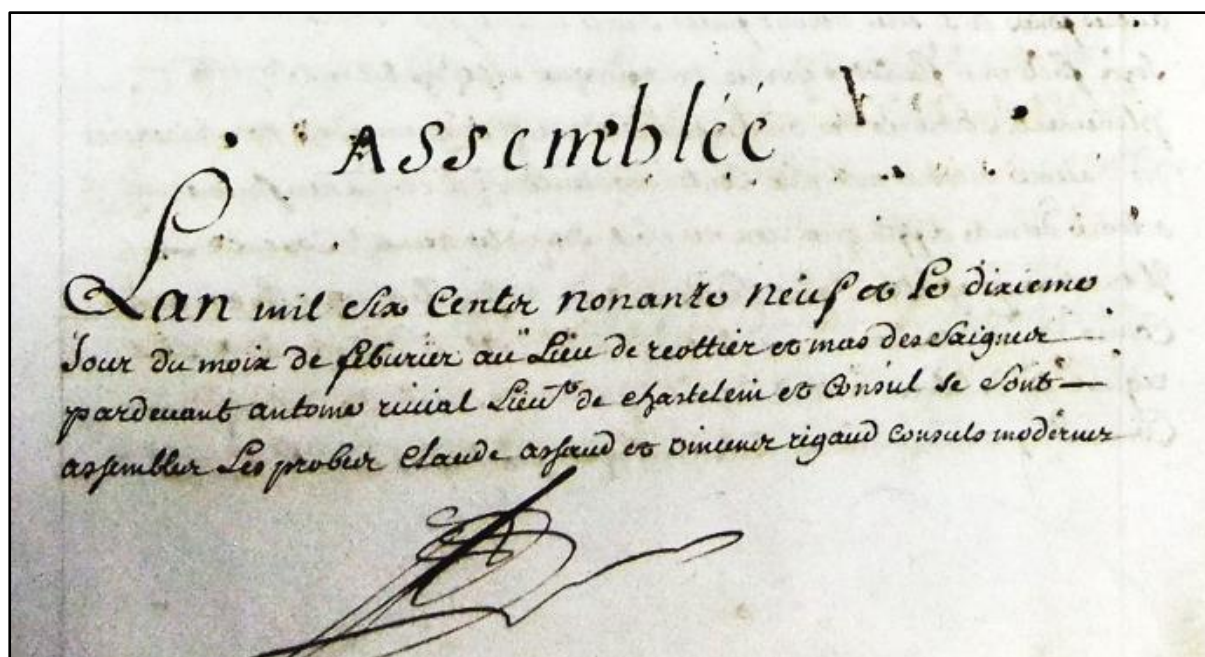 Assemblée
Lan mil six Cents nonante neuf et le dixieme
Jour du mois de feburier au Lieu de reottier et mas des Saigner
pardeuant antoine Lieu.t de chastelein et Consul se sont
assembles Les probes Claude assaud et vincens rigaud Consuls modernes